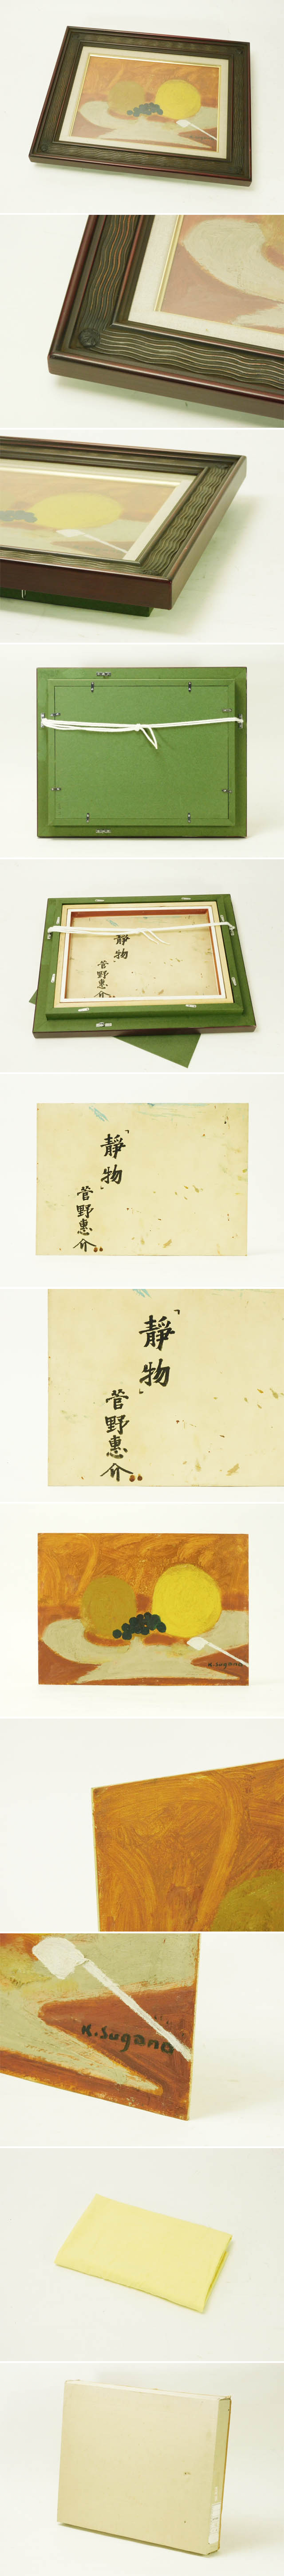 「靜物」
菅野惠介
「靜物」
菅野惠介
「靜物」
菅野惠介
K.Sugano
K.Sugano